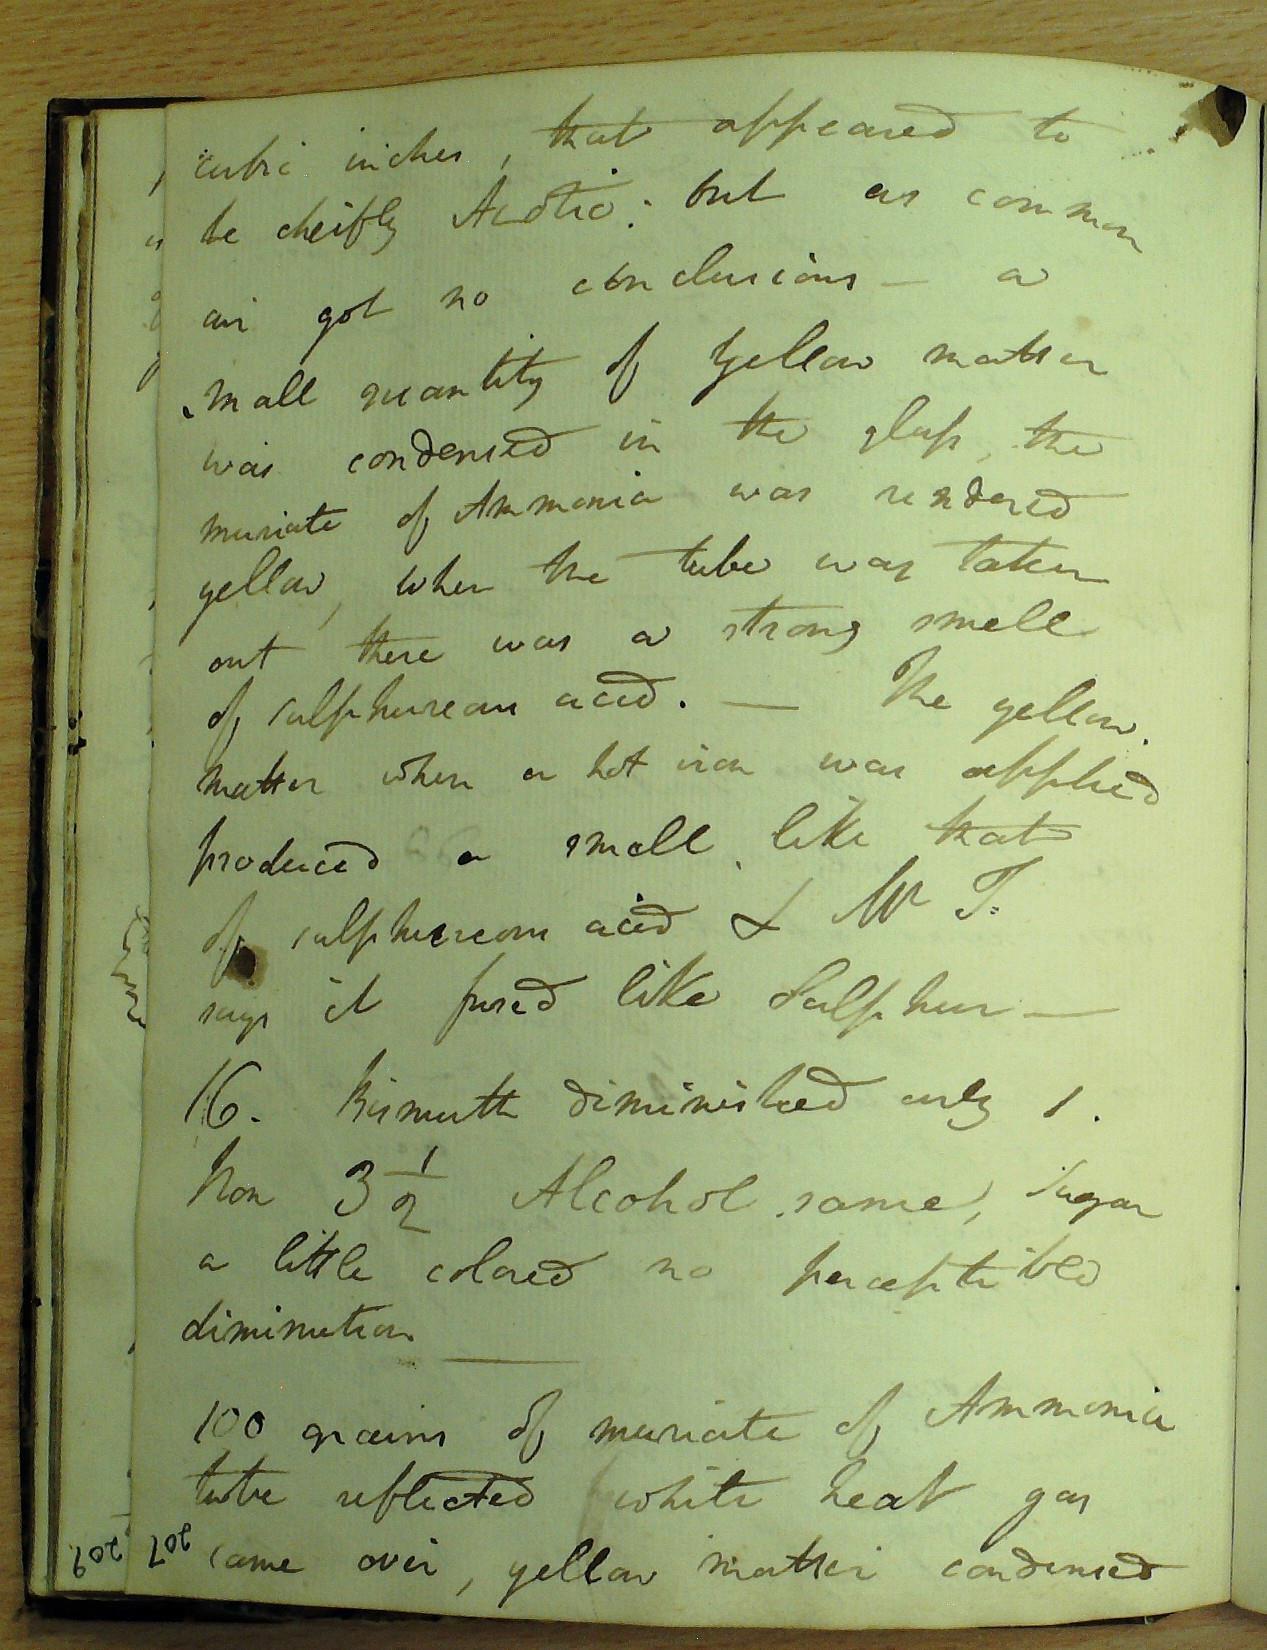 cubic inches, that appeared to
be cheifly Azotic: but as common
air got no conclusions — a
small quantity of Yellow matter
was condensed in the glass, the
muriate of Ammonia was rendered
yellow, when the tube was taken
out there was a strong smell
of sulphureous acid. — The yellow
matter when a hot iron was applied
produced a smell like that
of sulphureous acid & Mr T.
says it fused like Sulphur —
16. Bismuth diminished only 1.
Iron 3 1/2 Alcohol same, Sugar
a little colored no perceptible
diminution
100 grains of muriate of Ammonia
tube reflected white heat gas
came over, yellow matter condensed
209 207